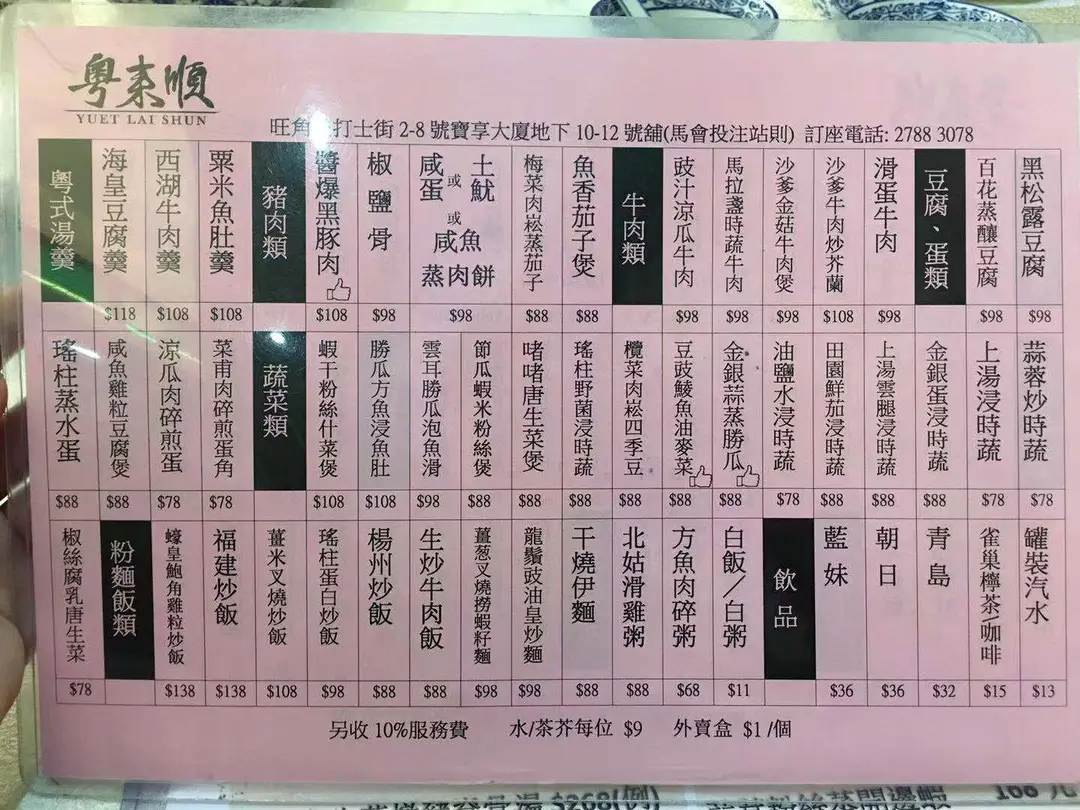 粵來順
YUET LAI SHUN
旺角 打士街 2-8 號寶享大廈地下 10-12 號舖(馬會投注站則) 訂座電話: 2788 3078
粵式湯羹
海皇豆腐羹 $118
西湖牛肉羹 $108
粟米魚肚羹 $108
豬肉類
醬爆黑豚肉 $108
椒鹽骨 $98
咸蛋 或 土魷 或 咸魚 蒸肉餅 $98
梅菜肉崧蒸茄子 $88
魚香茄子煲 $88
牛肉類
豉汁涼瓜牛肉 $98
馬拉盞時蔬牛肉 $98
沙爹金菇牛肉煲 $98
沙爹牛肉炒芥蘭 $108
滑蛋牛肉 $98
豆腐、蛋類
百花蒸釀豆腐 $98
黑松露豆腐 $98
瑤柱蒸水蛋 $88
咸魚雞粒豆腐煲 $88
涼瓜肉碎煎蛋 $78
菜甫肉碎煎蛋角 $78
蔬菜類
蝦干粉絲什菜煲 $108
勝瓜方魚浸魚肚 $108
雲耳勝瓜泡魚滑 $98
節瓜蝦米粉絲煲 $88
啫啫唐生菜煲 $88
瑤柱野菌浸時蔬 $88
欖菜肉崧四季豆 $88
豆豉鯪魚油麥菜 $88
金銀蒜蒸勝瓜 $88
油鹽水浸時蔬 $78
田園鮮茄浸時蔬 $88
上湯雲腿浸時蔬 $88
金銀蛋浸時蔬 $88
上湯浸時蔬 $78
蒜蓉炒時蔬 $78
椒絲腐乳唐生菜 $78
粉麵飯類
蠔皇鮑角雞粒炒飯 $138
福建炒飯 $138
薑米叉燒炒飯 $108
瑤柱蛋白炒飯 $98
楊州炒飯 $88
生炒牛肉飯 $88
薑葱叉燒撈蝦籽麵 $98
龍鬚豉油皇炒麵 $98
干燒伊麵 $88
北姑滑雞粥 $88
方魚肉碎粥 $68
白飯/白粥 $11
飲品
藍妹 $36
朝日 $36
青島 $32
雀巢檸茶\咖啡 $15
罐裝汽水 $13
另收 10%服務費 水/茶芥每位 $9 外賣盒 $1 /個